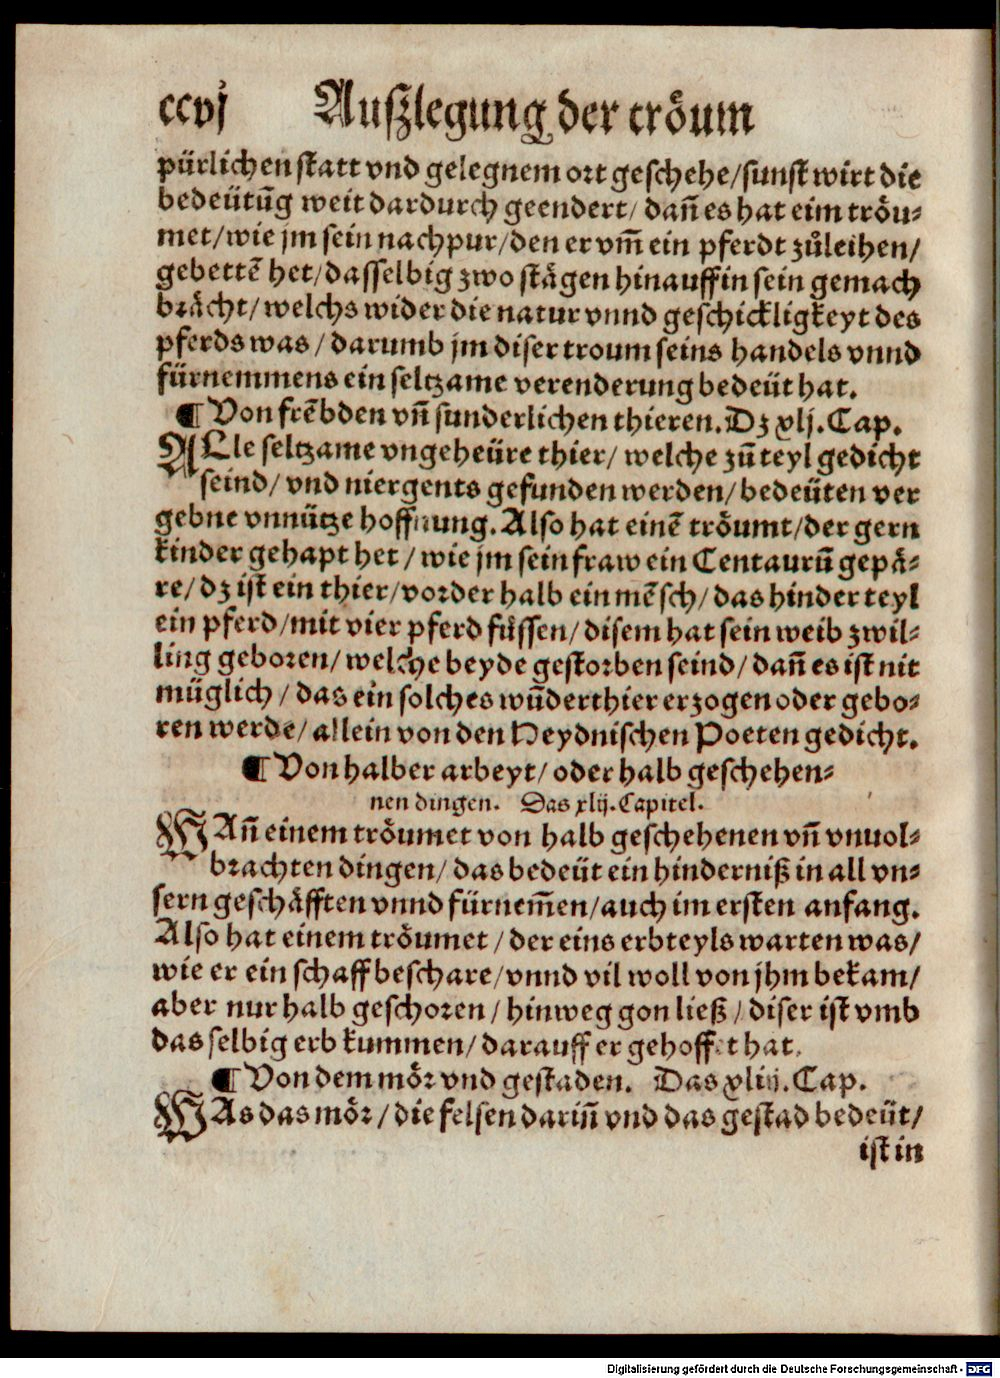 ccvj Auſzlegung der tröum
pürlichen ſtatt vnd gelegnem ort geſchehe/ſunſt wirt die
bedeütũg weit dardurch geendert/ dañ es hat eim tröu⸗
met/wie jm ſein nachpur/den er vm̃ ein pferdt zůleihen/
gebettẽ het/daſſelbig zwo ſtägen hinauff in ſein gemach
brächt/welchs wider die natur vnnd geſchickligkeyt des
pferds was/darumb jm diſer troum ſeins handels vnnd
fürnemmens ein ſeltzame verenderung bedeüt hat.
¶ Von frẽbden vñ ſunderlichen thieren. Dz xlj. Cap.
ALle ſeltzame vngeheüre thier/ welche zũ teyl gedicht
ſeind/ vnd niergents gefunden werden/ bedeüten ver
gebne vnnütze hoffnung. Alſo hat einẽ tröumt/der gern
kinder gehapt het/wie jm ſein fraw ein Centaurũ gepä⸗
re/dz iſt ein thier/vorder halb ein mẽſch/das hinder teyl
ein pferd/mit vier pferd füſſen/diſem hat ſein weib zwil⸗
ling geboren/welche beyde geſtorben ſeind/dañ es iſt nit
müglich/das ein ſolches wũderthier erzogen oder gebo⸗
ren werde/allein von den Heydniſchen Poeten gedicht.
¶ Von halber arbeyt/oder halb geſchehen⸗
nen dingen. Das xlij. Capitel.
WAñ einem tröumet von halb geſchehenen vñ vnuol⸗
brachten dingen/das bedeüt ein hinderniß in all vn⸗
ſern geſchäfften vnnd fürnem̃en/auch im erſten anfang.
Alſo hat einem tröumet/der eins erbteyls warten was/
wie er ein ſchaff beſchare/vnnd vil woll von jhm bekam/
aber nur halb geſchoren/hinweg gon ließ/diſer iſt vmb
das ſelbig erb kummen/darauff er gehoffet hat.
¶ Von dem mör vnd geſtaden. Das xliij. Cap.
WAs das mör/die felſen dariñ vnd das geſtad bedeüt/
iſt in
Digitalisierung gefördert durch die Deutsche Forschungsgemeinschaft - DFG